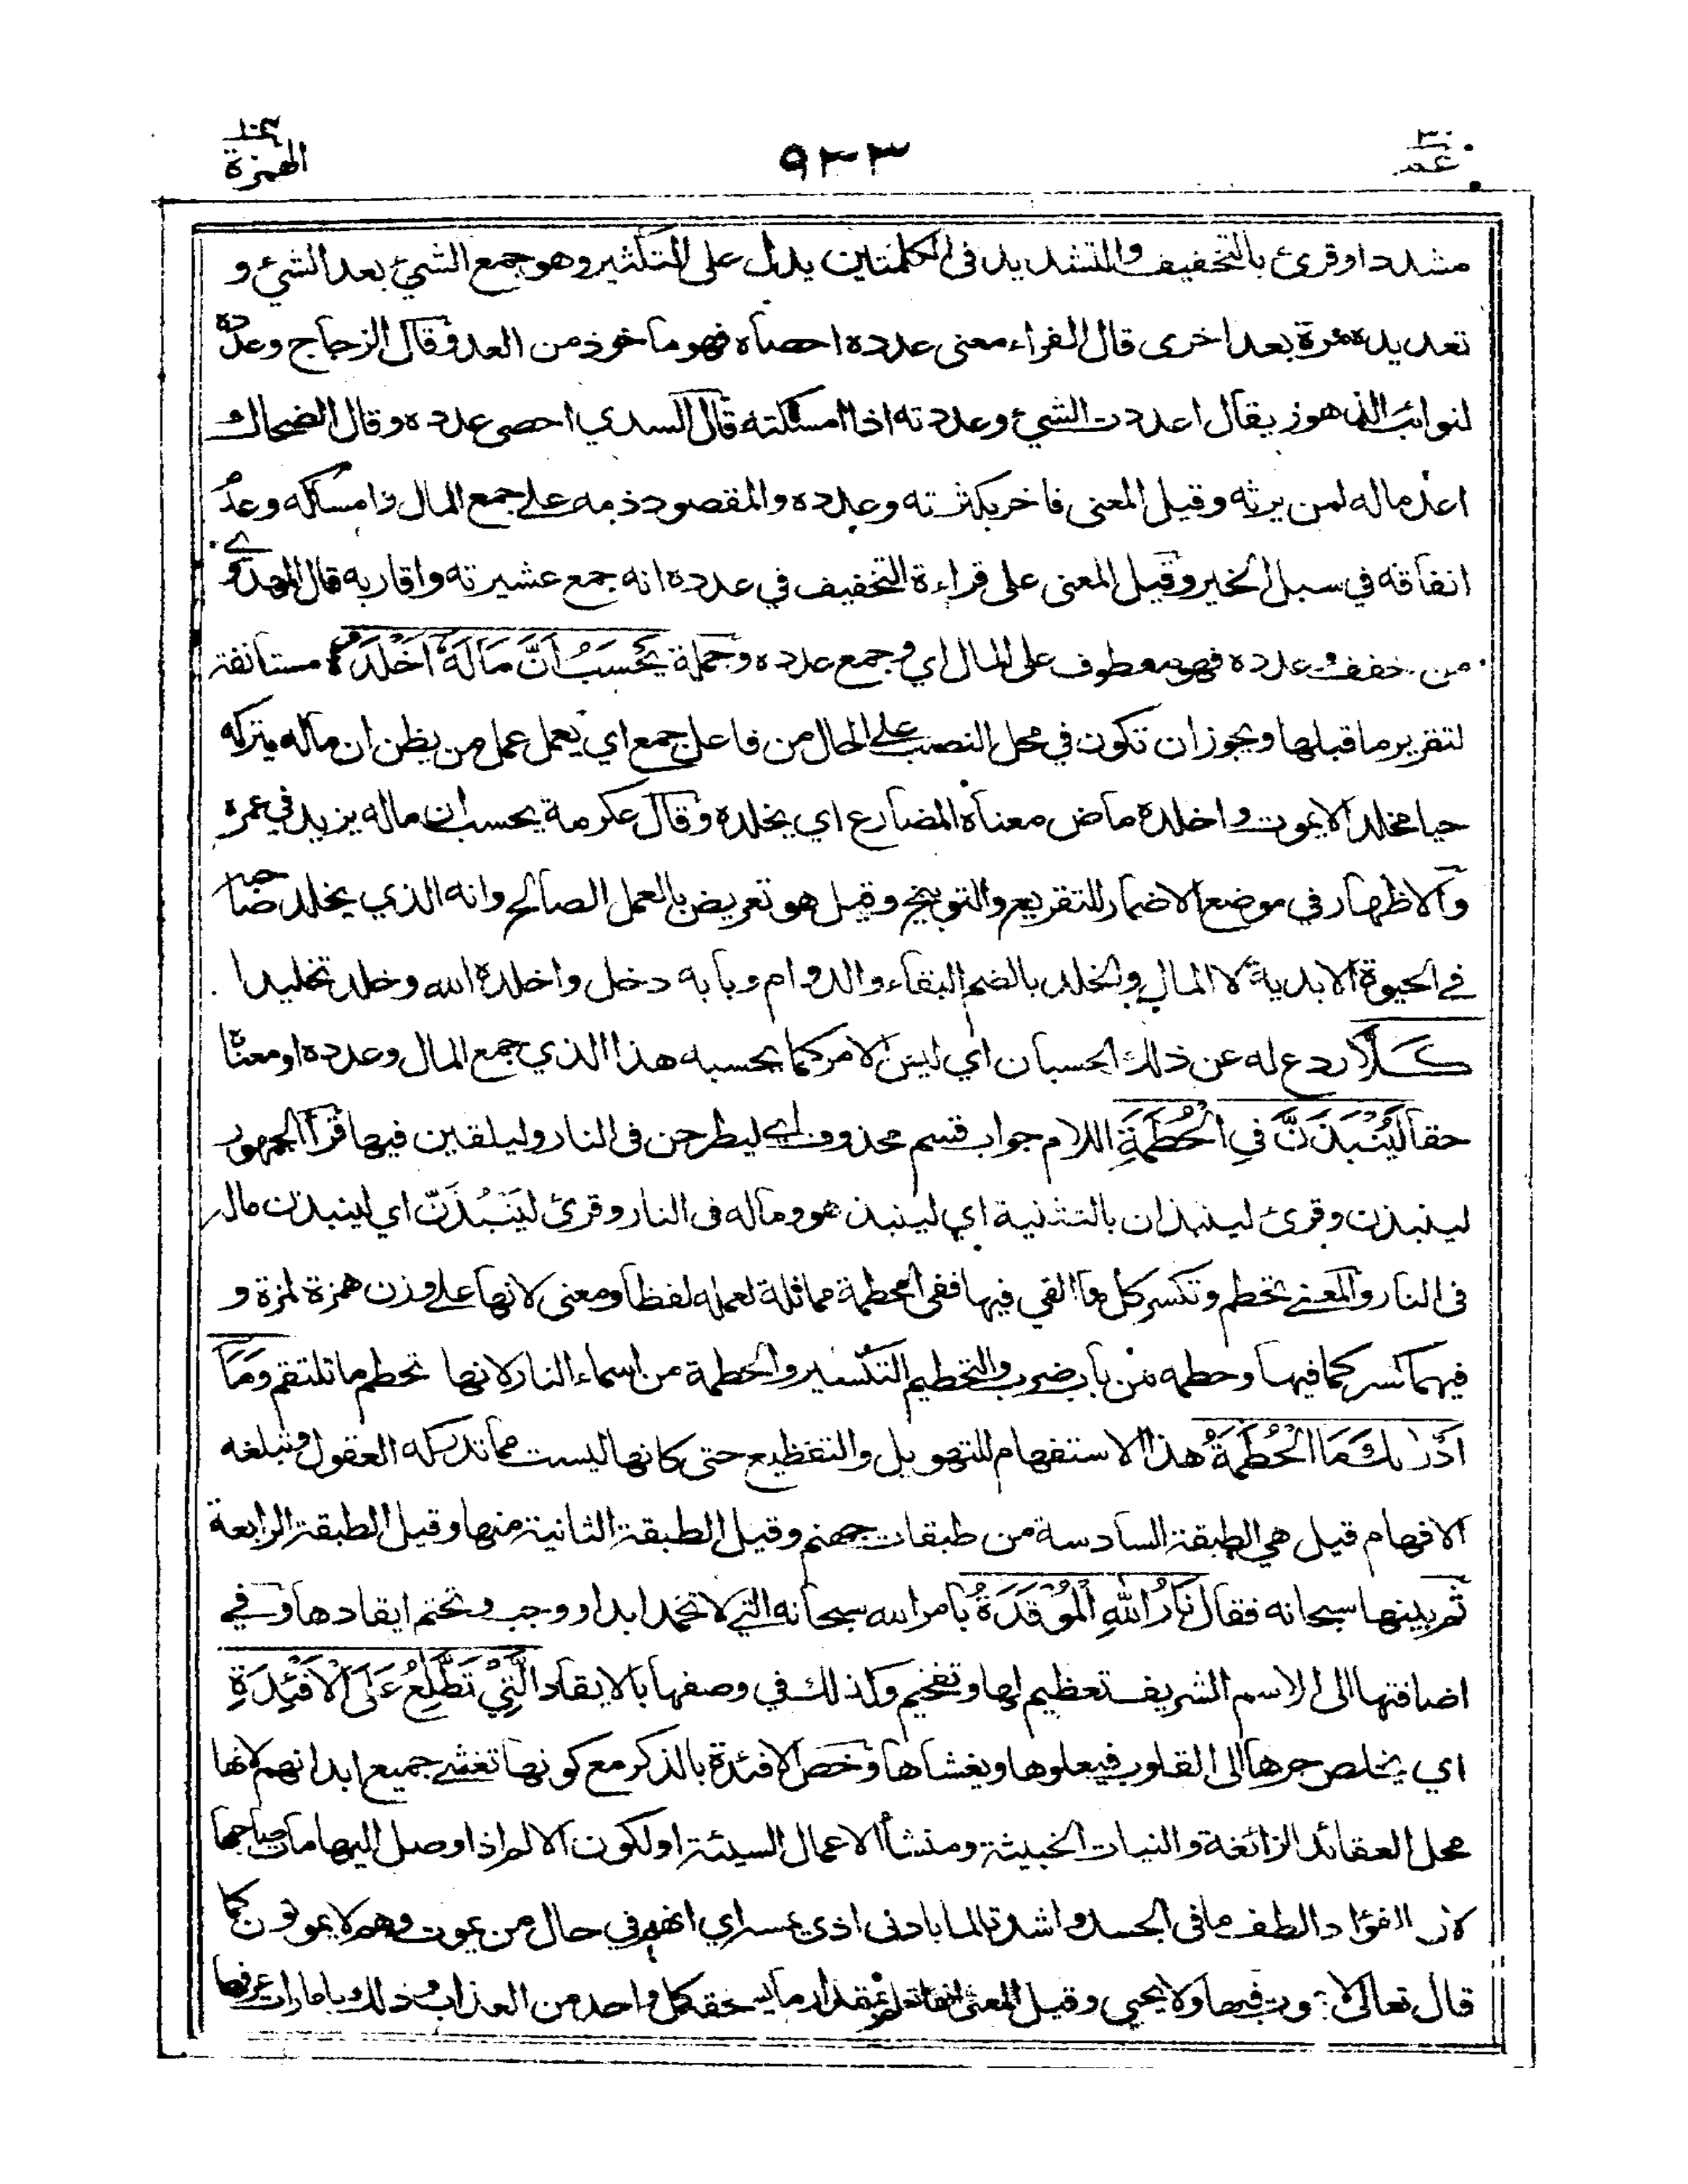 ٣٠
عم
٩٢٣
١٠٤
الهمزة
مشددا وقرئ بالتخفيف والتشديد في الكلمتين يدل على التكثير وهو جمع الشيء بعد الشيء و
تعديده مرة بعد اخرى قال الفراء معنى عدده احصاه فهو ماخوذ من العد وقال الزجاج وعدده
لنوائب الدهور يقال اعددت الشيء وعددته اذا امسكته قال السدي احصى عدده وقال الضحاك
اعد ماله لمن يرثه وقيل المعنى فاخر بكثرته وعدده والمقصود ذمه على جمع المال وامساكه وعدم
انفاقه في سبل الخير وقيل المعنى على قراءة التخفيف في عدده انه جمع عشيرته واقاربه قال المهدوي
من خفف وعدده فهو معطوف على المال اي وجمع عدده وجملة يَحْسَبُ اَنَّ مَالَهٗ اَخْلَدَهٗ مستانفة
لتقرير ما قبلها ويجوز ان تكون في محل النصب على الحال من فاعل جمع اي يعمل عمل من يظن ان ماله يتركه
حيا مخلدا لا يموت واخلده ماض معناه المضارع اي يخلده وقال عكرمة يحسب ان ماله يزيد في عمره
والاظهار في موضع الاضمار للتقريع والتوبيخ وقيل هو تعريض بالعمل الصالح وانه الذي يخلد صاحبه
في الحيوة الابدية لا المال والخلد بالضم البقاء والدوام وبابه دخل واخلده الله وخلد تخليدا
كَلَّا ردع له عن ذلك الحسبان اي ليس الامر كما يحسبه هذا الذي جمع المال وعدده او معناه
حقا لَيُنْبَذَنَّ فِي الْحُطَمَةِ اللام جواب قسم محذوف اي ليطرحن في النار وليلقين فيها قرأ الجمهور
لينبذن وقرئ لينبذان بالتثنية اي لينبذ هو وماله في النار وقرئ لَيَنْبُذَنّ اي لينبذن ماله
في النار والمعنى تحطم وتكسر كل ما القي فيها ففي الحطمة مماثلة لعمله لفظا ومعنى لانها على وزن همزة لمزة و
فيهما كسر كما فيها وحطمه من باب ضرب والتحطيم التكسير والحطمة من اسماء النار لانها تحطم ما تلتقم وَمَآ
اَدْرٰىكَ مَا الْحُطَمَةُ هذا الاستفهام للتهويل والتفظيع حتى كانها ليست مما تدركه العقول وتبلغه
الافهام قيل هي الطبقة السادسة من طبقات جهنم وقيل الطبقة الثانية منها وقيل الطبقة الرابعة
ثم بينها سبحانه فقال نَارُ اللهِ الْمُوْقَدَةُ بامر الله سبحانه التي لا تخمد ابدا ووجب وتحتم ايقادها وفي
اضافتها الى الاسم الشريف تعظيم لها وتفخيم وكذلك في وصفها بالايقاد الَّتِيْ تَطَّلِعُ عَلَى الْاَفْئِدَةِ
اي يخلص حرها الى القلوب فيعلوها ويغشاها وخص الافئدة بالذكر مع كونها تغشى جميع ابدانهم لانها
محل العقائد الزائغة والنيات الخبيثة ومنشأ الاعمال السيئة او لكون الالم اذا وصل اليها مات صاحبها
لان الفؤاد الطف ما في الجسد واشد تالما بادنى اذى يمسه اي انهم في حال من يموت وهم لا يموتون كما
قال تعالى لا يموت فيها ولا يحيى وقيل المعنى انها تعلم بمقدار ما يستحقه كل واحد من العذاب وذلك بامارات عرفها